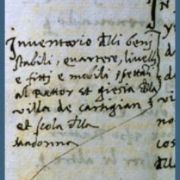 Inventario dlli beni
stabili, quarere, livelli
e fitti e mobili spettāti
al Rettor et giesia dlla
villa de Carsignan
et scola dlla
madonna